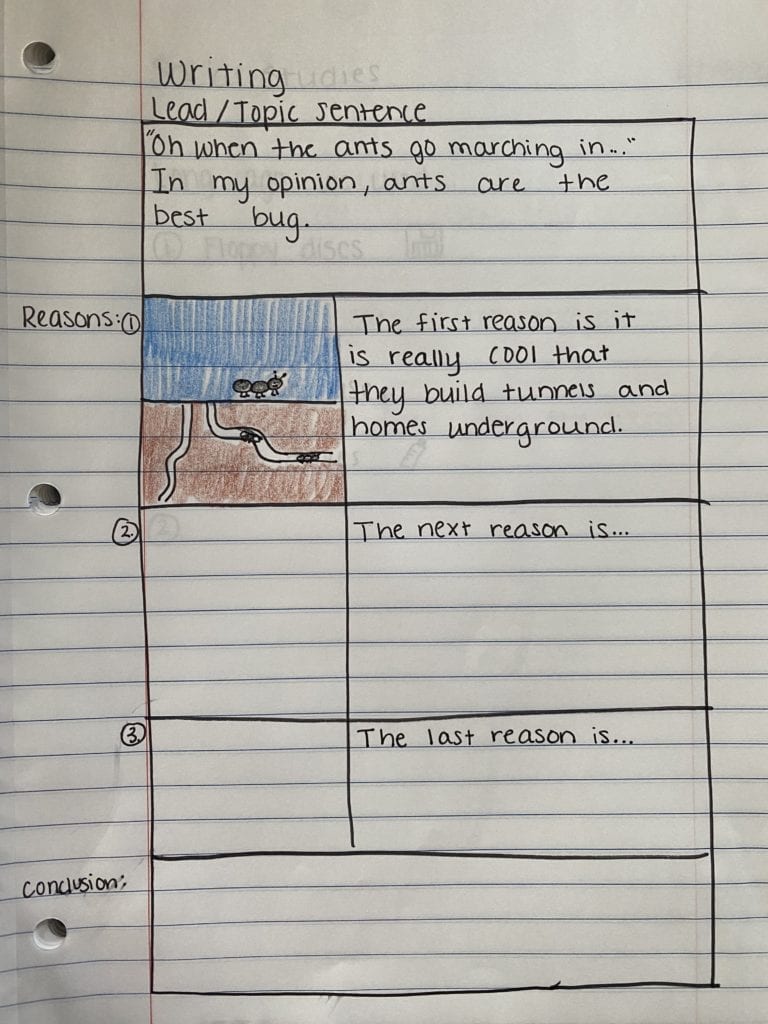 Writing
Lead/Topic sentence
"Oh when the ants go marching in..."
In my opinion, ants are the
best bug.
Reasons: ①
The first reason is it
is really cool that
they build tunnels and
homes underground.
②
The next reason is...
③
The last reason is...
Conclusion: